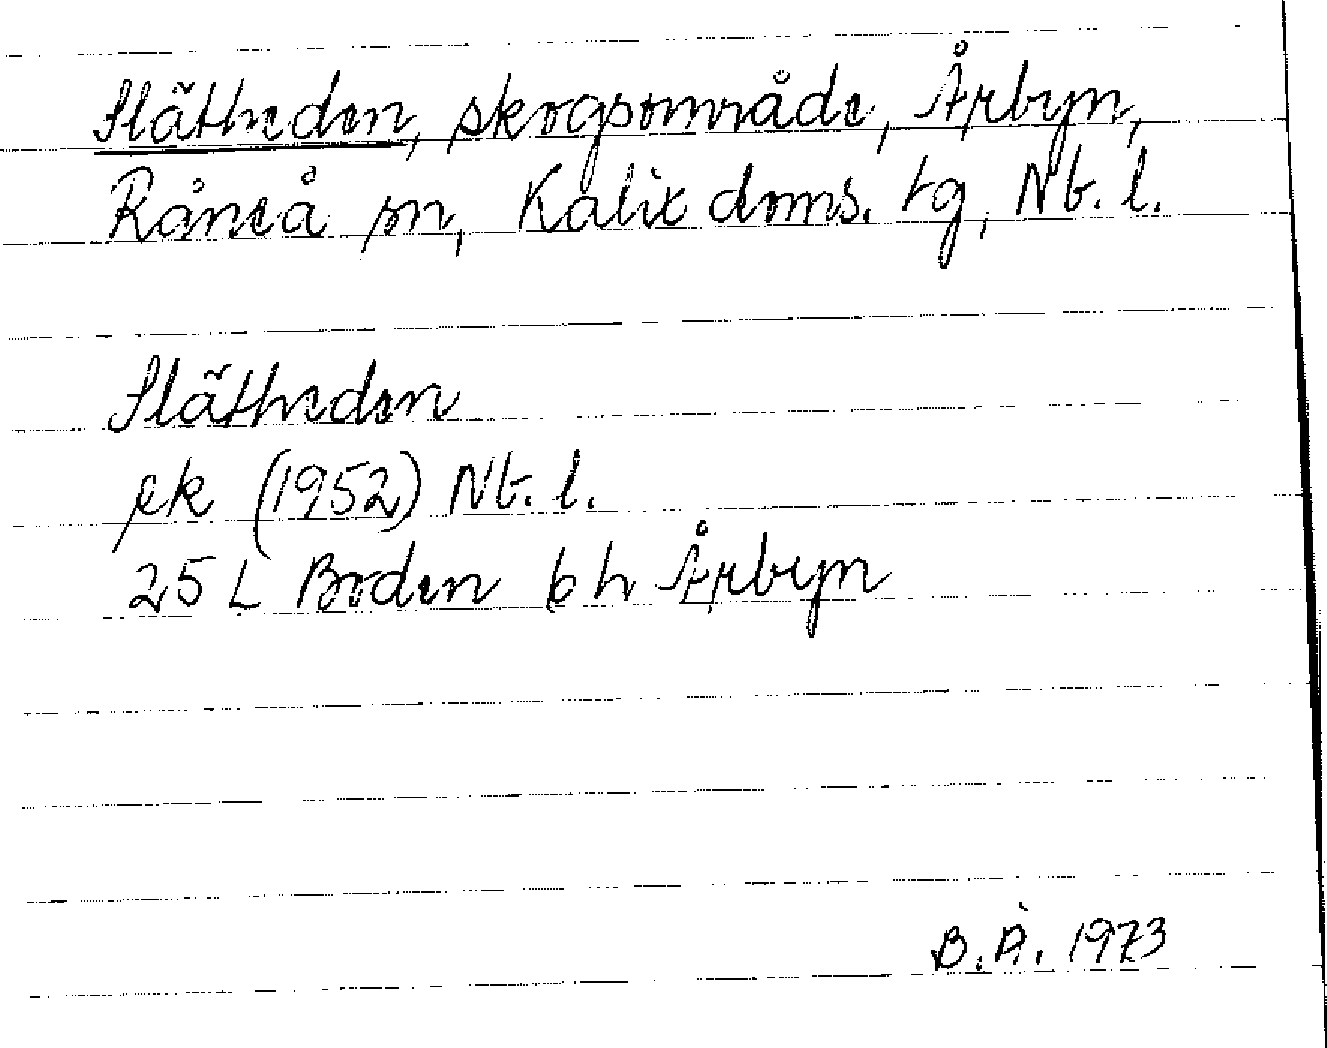 Slätheden, skogsområde, Årbyn,
Råneå sn, Kalix doms. tg, Nb. l.
Slätheden
ek (1952) Nb. l.
25 L Boden 6 h Årbyn
B.Å. 1973